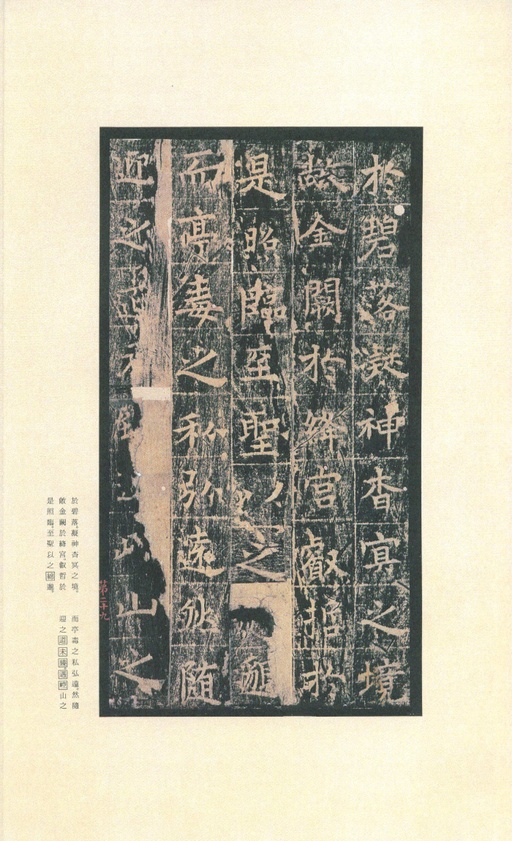 於碧落凝神杳冥之境
敞金闕於絳宮叡哲於
是照臨至聖以之
而亭毒之私弘遠然隨
迎之
山之
第二十九
於碧落凝神杳冥之境。
敞金闕於絳宮叡哲於
是照臨至聖以之
而亭毒之私弘遠然隨
迎之
山之